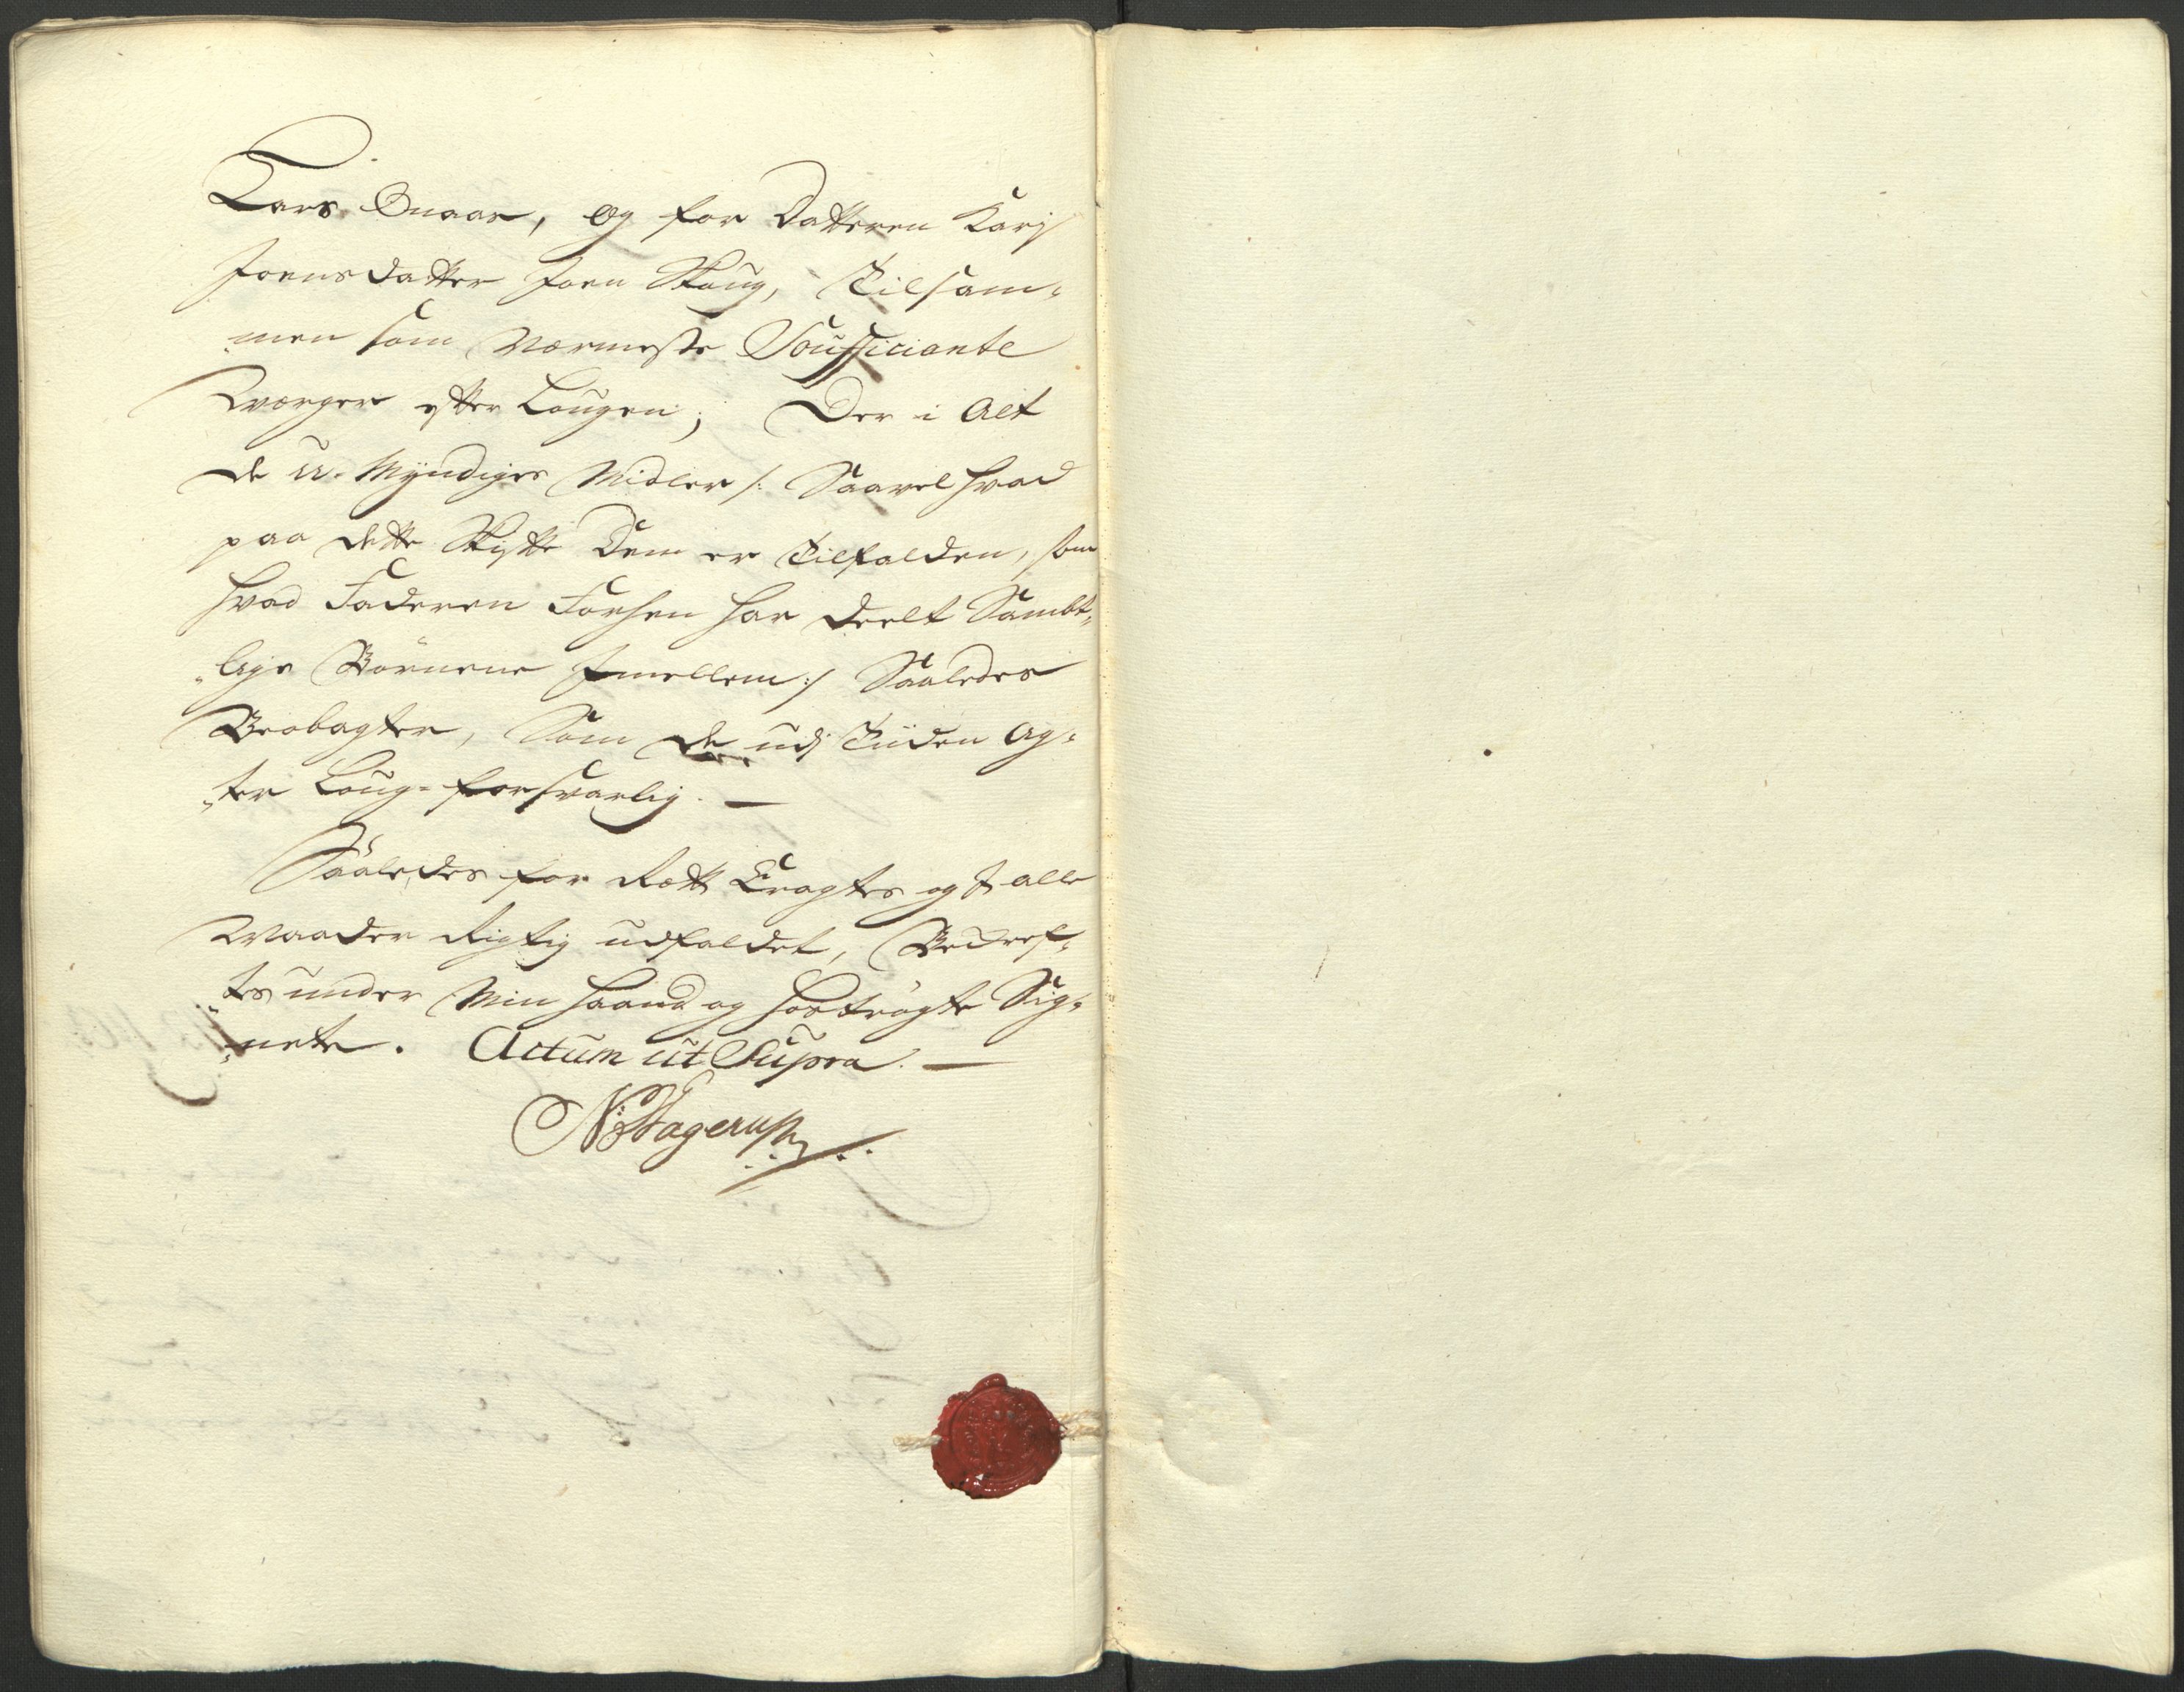 Lars Onaar, og for Datteren Karj
Joensdatter Joen Skoug, Tilsam-
-men som Nærmeste Soufficiante
Værger efter Lougen; Der i Alt
de U-Myndiges Midler /: Saavel hvad
paa dette Skifte Dem er Tilfalden, som
hvad Faderen Forhen har deelt Sambt-
-lige Börnene Jmellem :/ Saaledes
Beobagter, Som de udj Tiiden Ag-
-ter Loug-forsvarlig. —
Saaledes for Rætt Eragtes og J alle
Maader Rigtig udfaldet, Bekref-
-tes under Min Haand og hoströgte Sig-
-nete. Actum ut Supra. —
N: Hagerup